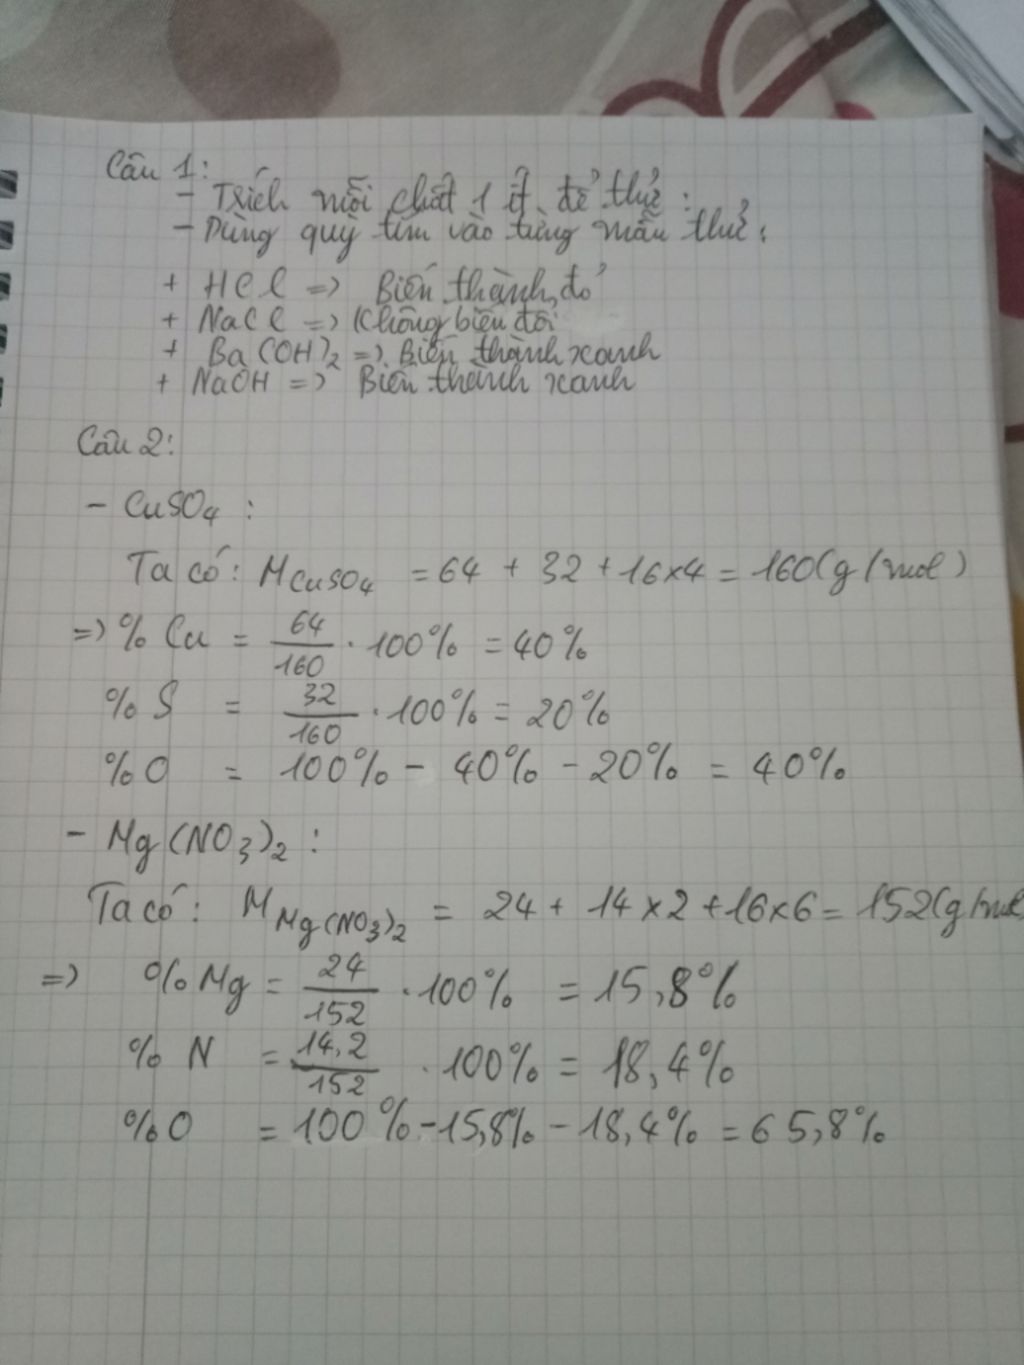 Câu 1:
- Trích mỗi chất 1 ít để thử:
- Dùng quỳ tím vào từng mẫu thử:
+ HCl => Biến thành đỏ
+ NaCl => Không biến đổi
+ Ba(OH)2 => Biến thành xanh
+ NaOH => Biến thành xanh
Câu 2:
- CuSO4 :
Ta có: MCuSO4 = 64 + 32 + 16×4 = 160(g/mol)
=> % Cu = 64/160 . 100% = 40%
% S = 32/160 . 100% = 20%
% O = 100% - 40% - 20% = 40%
- Mg(NO3)2 :
Ta có: MMg(NO3)2 = 24 + 14×2 + 16×6 = 152(g/mol
=> % Mg = 24/152 . 100% = 15,8%
% N = 14.2/152 . 100% = 18,4%
% O = 100% - 15,8% - 18,4% = 65,8%